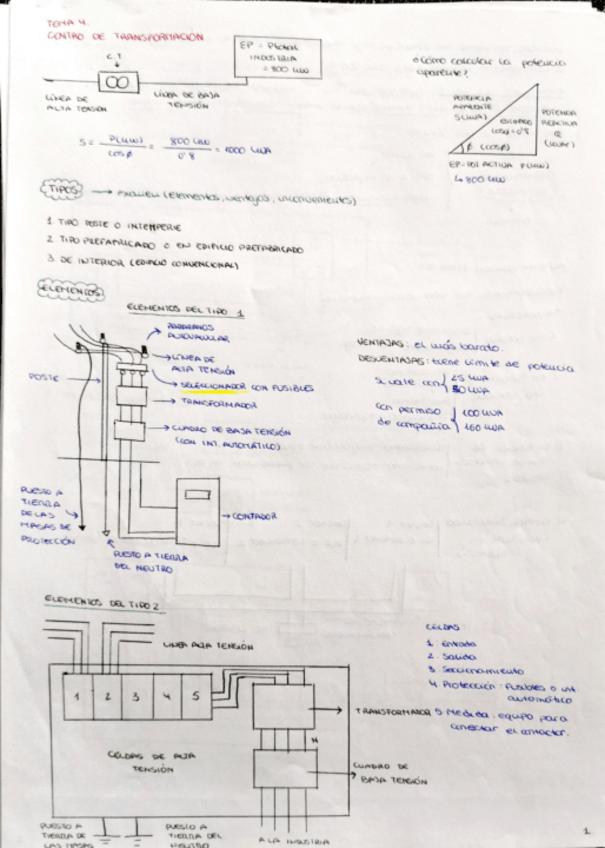 TEMA 4.
CENTRO DE TRANSFORMACIÓN
C.T
LÍNEA DE
ALTA TENSIÓN
LÍNEA DE BAJA
TENSIÓN
EP = Photal
INDUSTRIA
= 800 kW
¿Cómo calcular la potencia
aparente?
POTENCIA
APARENTE
S(kVA)
ESTIMADO
cosφ=0'8
φ (cosφ)
POTENCIA
REACTIVA
Q
(kVAr)
EP=POT ACTIVA P(kW)
↳ 800 kW
S = P(kW) / cosφ = 800 kW / 0'8 = 1000 kVA
TIPOS → examen (elementos, ventajas, inconvenientes)
1 TIPO POSTE O INTEMPERIE
2 TIPO PREFABRICADO O EN EDIFICIO PREFABRICADO
3. DE INTERIOR (EDIFICIO CONVENCIONAL)
ELEMENTOS:
ELEMENTOS DEL TIPO 1
PARARRAYOS
AUTOVALVULAR
LÍNEA DE
ALTA TENSIÓN
SECCIONADOR CON FUSIBLES
TRANSFORMADOR
CUADRO DE BAJA TENSIÓN
(CON INT. AUTOMÁTICO)
POSTE
CONTADOR
PUESTO A
TIERRA
DE LAS
MASAS DE
PROTECCIÓN
PUESTO A TIERRA
DEL NEUTRO
VENTAJAS: el más barato.
DESVENTAJAS: tiene límite de potencia
si vale con { 25 kVA
50 kVA
con permiso
de compañía } 100 kVA
160 kVA
ELEMENTOS DEL TIPO 2
LINEA ALTA TENSIÓN
1 2 3 4 5
CELDAS DE ALTA
TENSIÓN
TRANSFORMADOR
N
CUADRO DE
BAJA TENSIÓN
CELDAS:
1. Entrada
2. Salida
3 Seccionamiento
4 Protección: fusibles o int.
automático
5 Medida: equipo para
conectar el contactor.
PUESTO A
TIERRA DE
LAS MASAS
PUESTO A
TIERRA DEL
NEUTRO
A LA INDUSTRIA
1